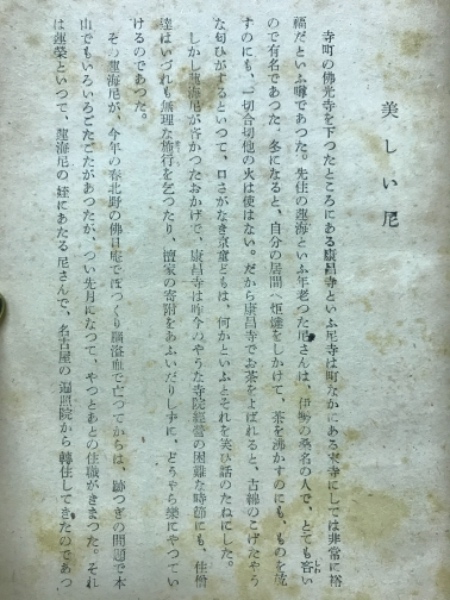 美しい尼
寺町の佛光寺を下つたところにある康昌寺といふ尼寺は町なかにある末寺にしては非常に裕
福だといふ噂であつた。先住の蓮海といふ年老つた尼さんは、伊勢の桑名の人で、とても吝い
ので有名であつた。冬になると、自分の居間へ炬燵をしかけて、茶を沸かすのにも、ものを煮
すのにも、一切合切他の火は使はない。だから康昌寺でお茶をよばれると、古綿のこげたやう
な匂ひがするといつて、口さがなき京童どもは、何かといふとそれを笑ひ話のたねにした。
しかし蓮海尼が吝かつたおかげで、康昌寺は昨今のやうな寺院經營の困難な時節にも、住僧
達はいづれも無理な修行を乞つたり、檀家の寄附をあふいだりしずに、どうやら樂にやつてい
けるのであつた。
その蓮海尼が、今年の春北野の佛日庵でぽつくり腦溢血で亡つてからは、跡つぎの問題で本
山でもいろいろごたごたがあつたが、つい先月になつて、やつとあとの住職がきまつた。それ
は蓮榮といつて、蓮海尼の姪にあたる尼さんで、名古屋の遍照院から轉住してきたのであつ